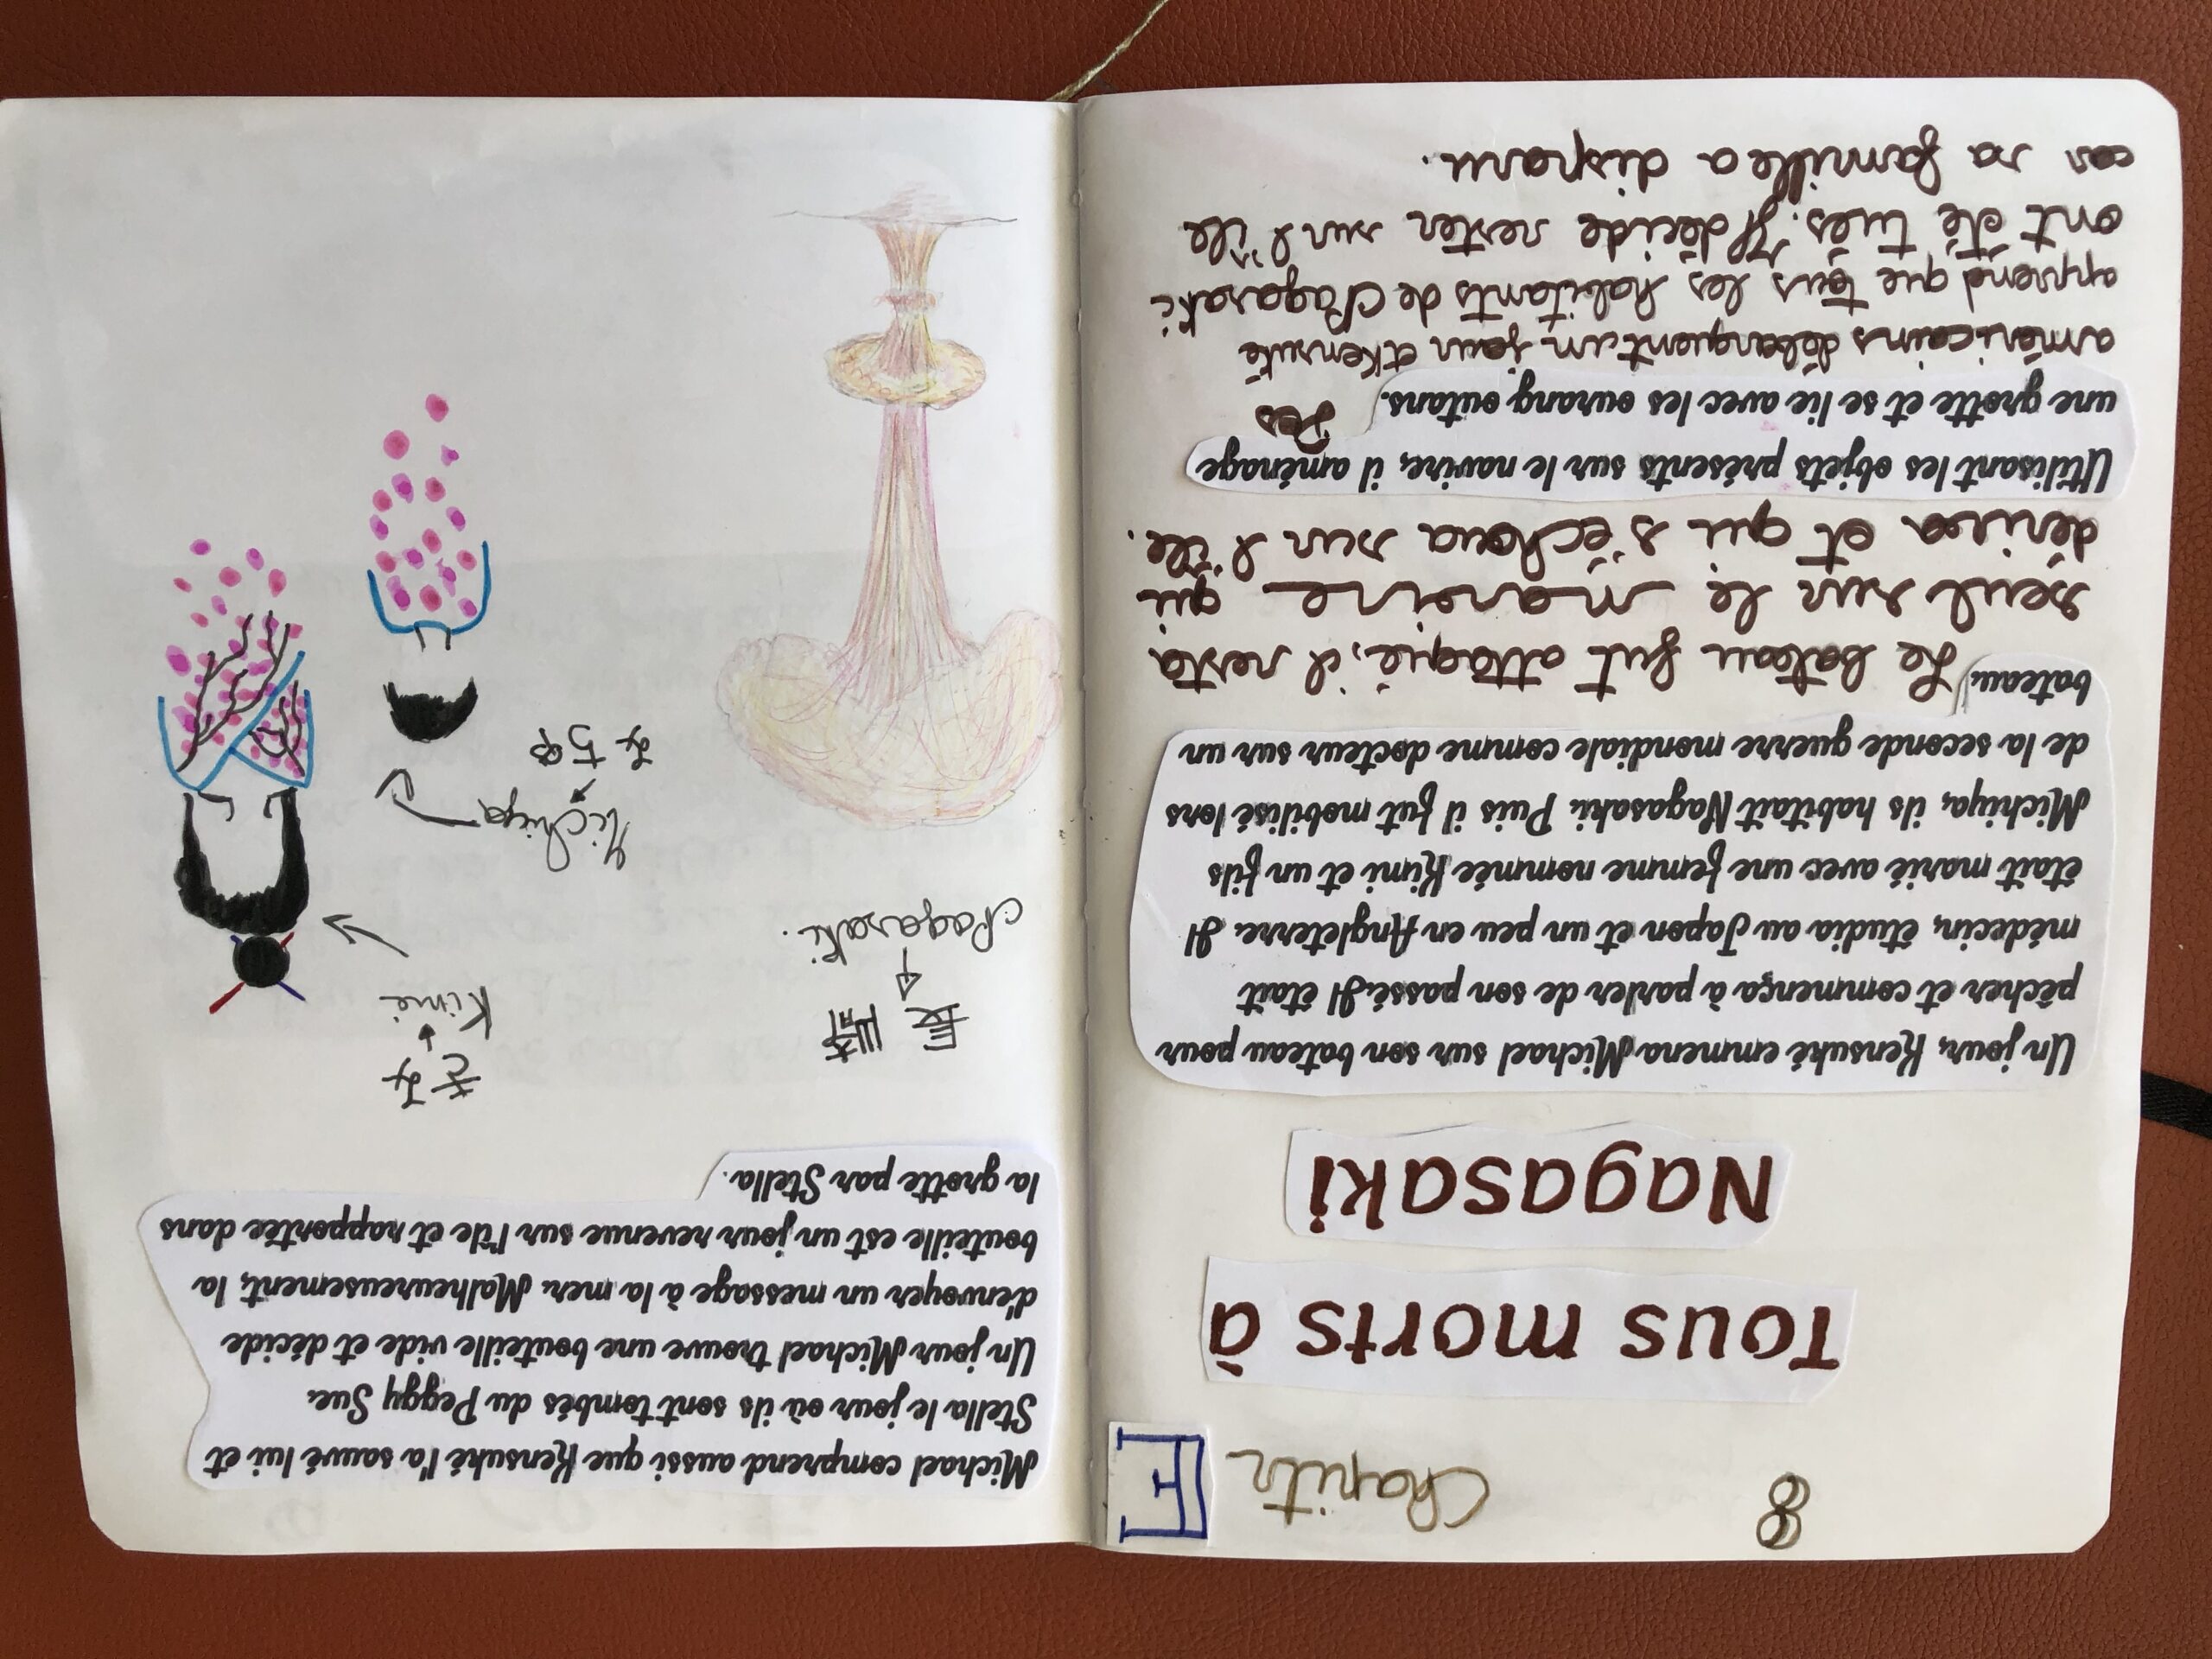 8 Chapitr E
Tous morts à
Nagasaki
Un jour, Kensuké emmena Michael sur son bateau pour
pêcher et commença à parler de son passé. Il était
médecin, étudia au Japon et un peu en Angleterre. Il
était marié avec une femme nommée Kimi et un fils
Michiya, ils habitait Nagasaki. Puis il fut mobilisé lors
de la seconde guerre mondiale comme docteur sur un
bateau. Le bateau fut attaqué, il resta
seul sur le navire qui
dériva et qui s'échoua sur l'île.
Utilisant les objets présents sur le navire, il aménage
une grotte et se lie avec les ourang outans. Des
américains débarquent un jour et Kensuké
apprend que tous les habitants de Nagasaki
ont été tués. Il décide rester sur l'île
car sa famille a disparu.
Michael comprend aussi que Kensuké l'a sauvé lui et
Stella le jour où ils sont tombés du Peggy Sue.
Un jour Michael trouve une bouteille vide et décide
d'envoyer un message à la mer. Malheureusement, la
bouteille est un jour revenue sur l'île et rapportée dans
la grotte par Stella.
長崎
Nagasaki.
きみ
Kimi
Michiya
みちや